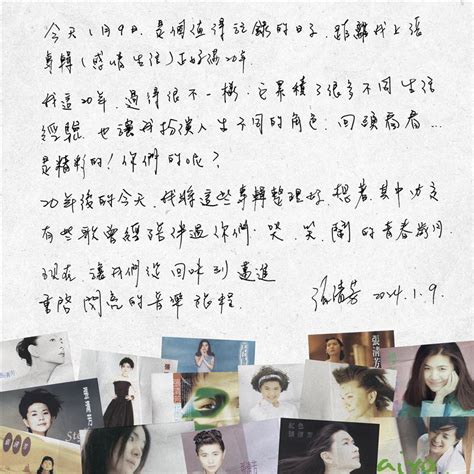 今天1月9日,是個值得註錄的日子,距離我上張
專輯(感情生活)正好滿20年.
我這20年,過得很不一樣,它累積了很多不同生活
經驗,也讓我扮演人生不同的角色,回頭看看...
是精彩的!你們的呢?
20年後的今天,我將這些專輯整理好,想着其中必定
有些歌曾經陪伴過你們,哭、笑、鬧的青春歲月.
現在,讓我們從回味到邁進
重啓閃亮的音樂旅程.
張清芳 2024.1.9.
張清芳
紅色
張清芳